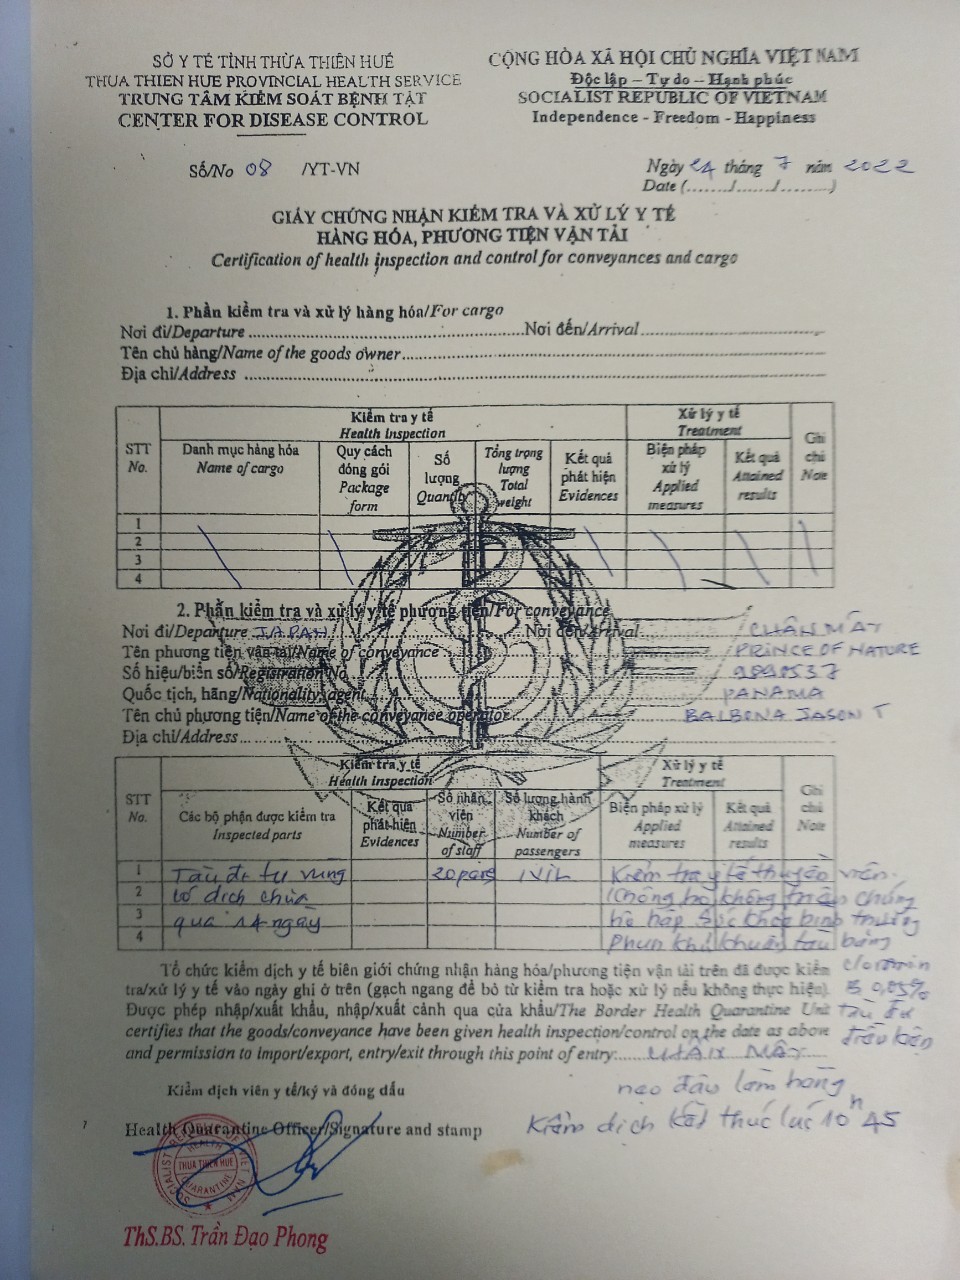 SỞ Y TẾ TỈNH THỪA THIÊN HUẾ
THUA THIEN HUE PROVINCIAL HEALTH SERVICE
TRUNG TÂM KIỂM SOÁT BỆNH TẬT
CENTER FOR DISEASE CONTROL
CỘNG HÒA XÃ HỘI CHỦ NGHĨA VIỆT NAM
Độc lập – Tự do – Hạnh phúc
SOCIALIST REPUBLIC OF VIETNAM
Independence - Freedom - Happiness
Số/No 08 /YT-VN
Ngày 24 tháng 7 năm 2022
Date (......./......./.........)
GIẤY CHỨNG NHẬN KIỂM TRA VÀ XỬ LÝ Y TẾ
HÀNG HÓA, PHƯƠNG TIỆN VẬN TẢI
Certification of health inspection and control for conveyances and cargo
1. Phần kiểm tra và xử lý hàng hóa/For cargo
Nơi đi/Departure ........ Nơi đến/Arrival ........
Tên chủ hàng/Name of the goods owner ........
Địa chỉ/Address ........
STT No.
Kiểm tra y tế Health Inspection
Xử lý y tế Treatment
Ghi chú Note
Danh mục hàng hóa Name of cargo
Quy cách đóng gói Package form
Số lượng Quantity
Tổng trọng lượng Total weight
Kết quả phát hiện Evidences
Biện pháp xử lý Applied measures
Kết quả Attained results
1
2
3
4
2. Phần kiểm tra và xử lý y tế phương tiện/For conveyance
Nơi đi/Departure JAPAN Nơi đến/Arrival CHÂN MÂY
Tên phương tiện vận tải/Name of conveyance PRINCE OF NATURE
Số hiệu/biển số/Registration No
Quốc tịch, hãng/Nationality, agent PANAMA
Tên chủ phương tiện/Name of the conveyance operator BALBONA JASON T
Địa chỉ/Address ........
STT No.
Kiểm tra y tế Health inspection
Xử lý y tế Treatment
Ghi chú Note
Các bộ phận được kiểm tra Inspected parts
Kết quả phát hiện Evidences
Số nhân viên Number of staff
Số lượng hành khách Number of passengers
Biện pháp xử lý Applied measures
Kết quả Attained results
1 Tàu đi từ vùng 20 Kiểm tra y tế thuyền viên
2 có dịch chưa không ho không triệu chứng
3 qua 14 ngày hô hấp Sức khỏe bình thường
4 Phun khử khuẩn tàu bằng
Tổ chức kiểm dịch y tế biên giới chứng nhận hàng hóa/phương tiện vận tải trên đã được kiểm
tra/xử lý y tế vào ngày ghi ở trên (gạch ngang để bỏ từ kiểm tra hoặc xử lý nếu không thực hiện). 0,05%
Được phép nhập/xuất khẩu, nhập/xuất cảnh qua cửa khẩu/The Border Health Quarantine Unit tàu đủ
certifies that the goods/conveyance have been given health inspection/control on the date as above điều kiện
and permission to import/export, entry/exit through this point of entry: CHÂN MÂY
neo đậu làm hàng
Kiểm dịch kết thúc lúc 10h45
Kiểm dịch viên y tế/ký và đóng dấu
Health Quarantine Officer/Signature and stamp
SOCIALIST REPUBLIC OF VIET NAM
HEALTH
THUA THIEN HUE
QUARANTINE
ThS.BS. Trần Đạo Phong